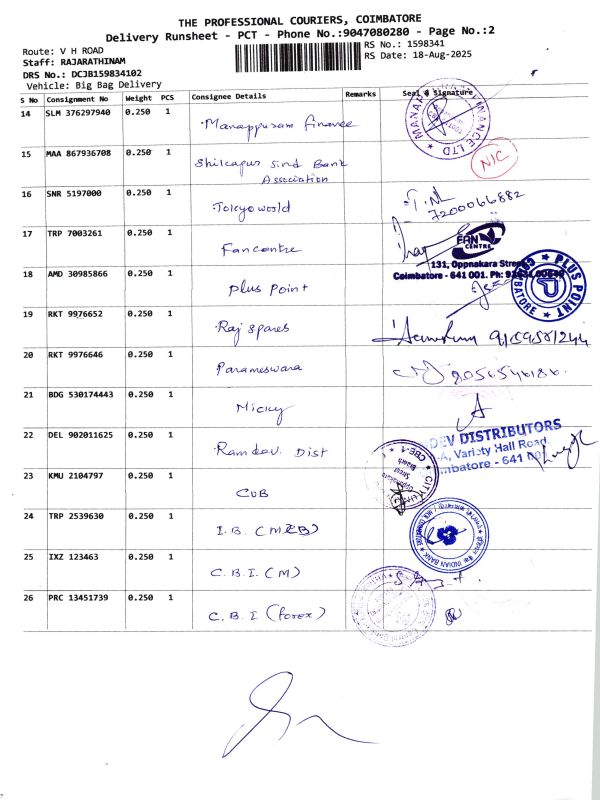 THE PROFESSIONAL COURIERS, COIMBATORE
Delivery Runsheet - PCT - Phone No.:9047080280 - Page No.:2
Route: V H ROAD
RS No.: 1598341
Staff: RAJARATHINAM
RS Date: 18-Aug-2025
DRS No.: DCJB159834102
Vehicle: Big Bag Delivery
S No Consignment No Weight PCS Consignee Details Remarks Seal & Signature
14 SLM 376297940 0.250 1 Manappuram Finance
15 MAA 867936708 0.250 1 Bank NIC
Association
16 SNR 5197000 0.250 1 Tokyo world
7200066882
17 TRP 7003261 0.250 1 Fancentre
FAN CENTRE
131, Oppnakara Street
Coimbatore - 641 001. Ph:
18 AMD 30985866 0.250 1 Plus Point
PLUS POINT
19 RKT 9976652 0.250 1 Raj spares
20 RKT 9976646 0.250 1 Parameswara
21 BDG 530174443 0.250 1 Micky
22 DEL 902011625 0.250 1 Ramdev. Dist
DEV DISTRIBUTORS
Variety Hall Road
mbatore - 641 001
23 KMU 2104797 0.250 1 CUB
24 TRP 2539630 0.250 1 I.B. (MCB)
INDIAN BANK
25 IXZ 123463 0.250 1 C.B.I. (M)
26 PRC 13451739 0.250 1 C.B.I (forex)